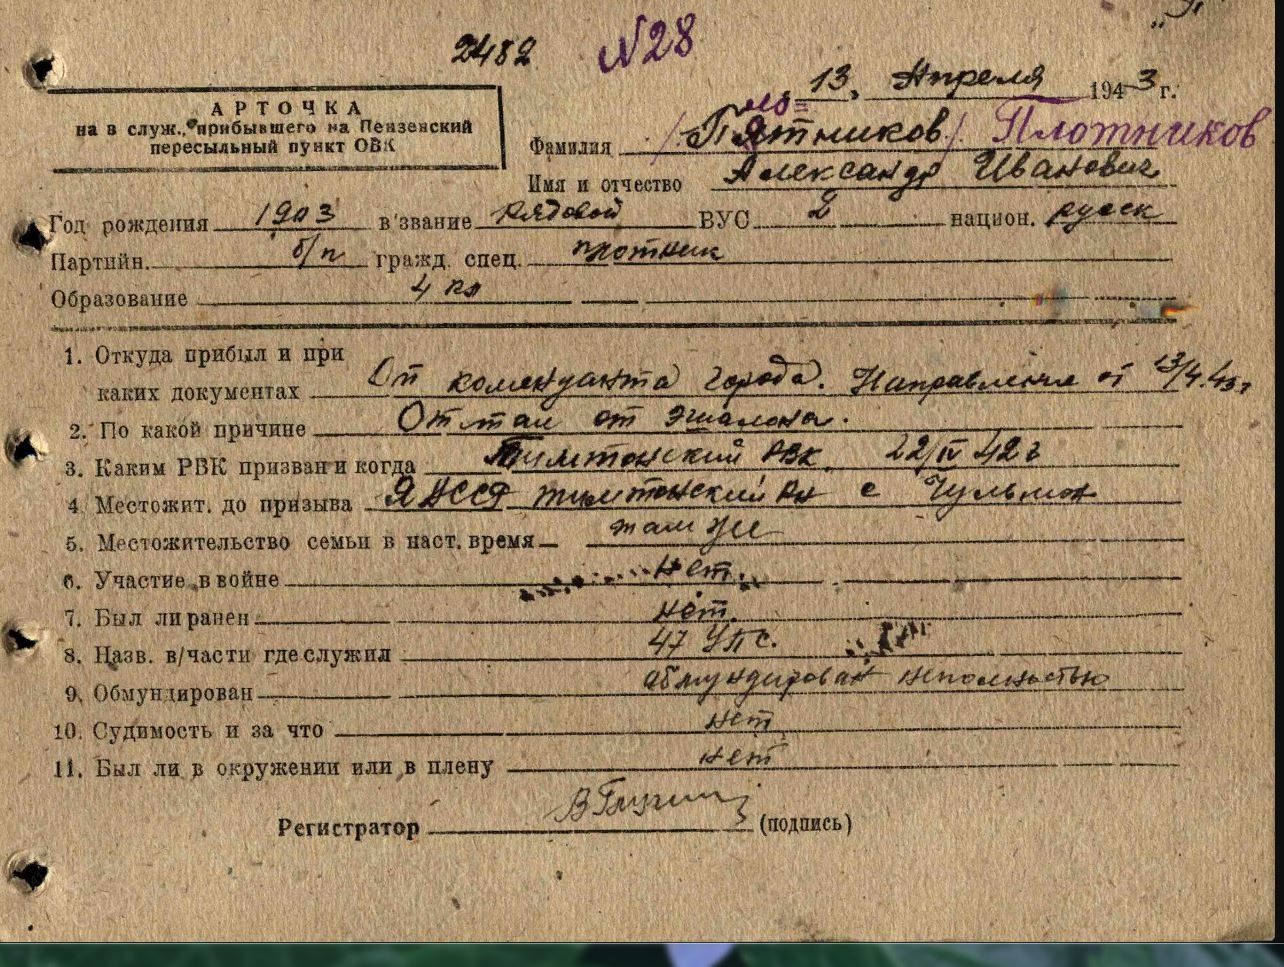 2482 N28
13. Апреля 1943 г.
АРТОЧКА
на в служ., прибывшего на Пензенский
пересыльный пункт ОВК
ло=
Фамилия /Пятников/ Плотников
Имя и отчество Александр Иванович
Год рождения 1903 в звание Рядовой ВУС 2 национ. русск
Партийн. б/п гражд. спец. плотник
Образование 4 кл
1. Откуда прибыл и при
каких документах От коменданта города. Направления от 13/4.43г
2. По какой причине Отстал от эшалона.
3. Каким РВК призван и когда Тимтонский РВК 22/IV 42 г
4. Местожит. до призыва ЯАССР тимтонский рн с Чульман
5. Местожительство семьи в наст. время там же
6. Участие в войне нет.
7. Был ли ранен нет.
8. Назв. в/части где служил 47 УПС.
9. Обмундирован обмундирован неполностью
10. Судимость и за что нет
11. Был ли в окружении или в плену нет
Регистратор (подпись)